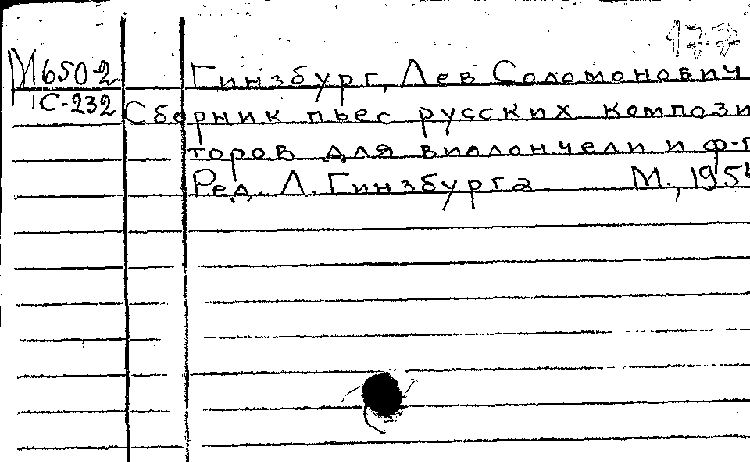 177
М650-2 Гинзбург, Лев Соломонович
С-232 Сборник пьес русских компози
торов для виолончели и ф-п
Ред. Л. Гинзбурга М., 195